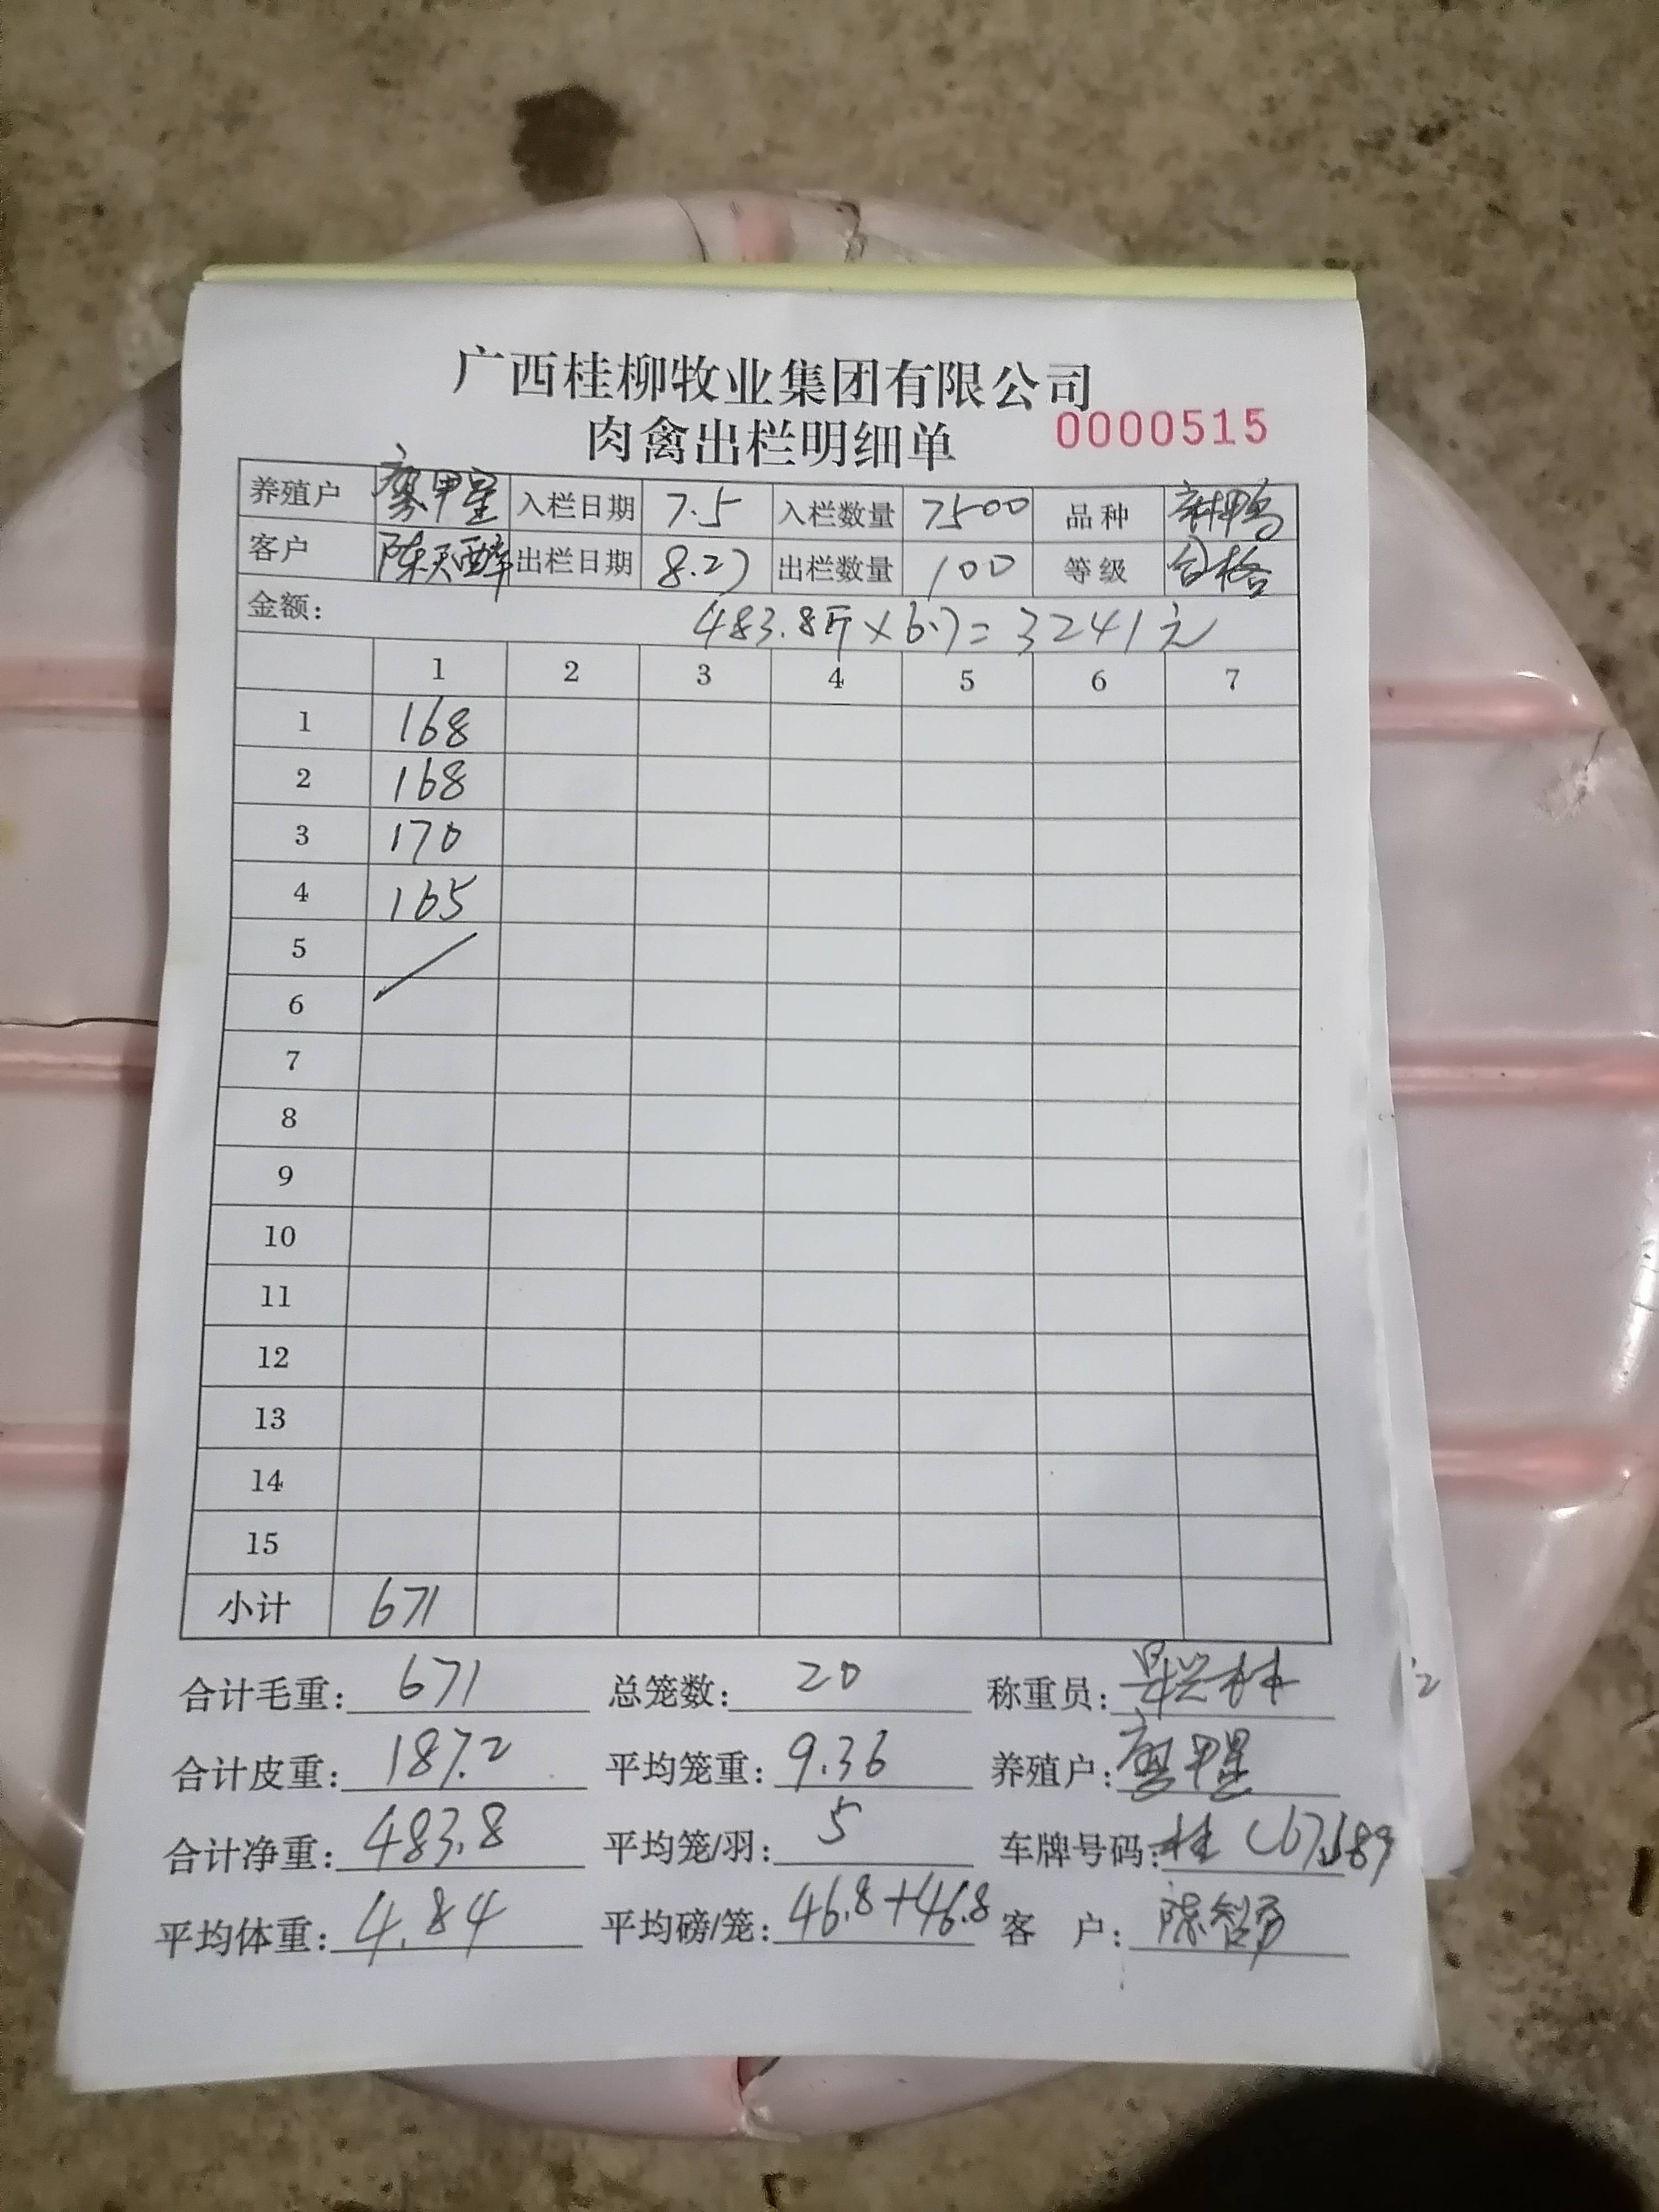 广西桂柳牧业集团有限公司
肉禽出栏明细单 0000515
养殖户 廖甲星 入栏日期 7.5 入栏数量 7500 品种
客户 出栏日期 8.27 出栏数量 100 等级 合格
金额: 483.8斤×6.7=3241元
1 2 3 4 5 6 7
1 168
2 168
3 170
4 165
5
6
7
8
9
10
11
12
13
14
15
小计 671
合计毛重: 671 总笼数: 20 称重员:
合计皮重: 187.2 平均笼重: 9.36 养殖户: 廖甲星
合计净重: 483.8 平均笼/羽: 5 车牌号码: 桂
平均体重: 4.84 平均磅/笼: 46.8+46.8 客 户: